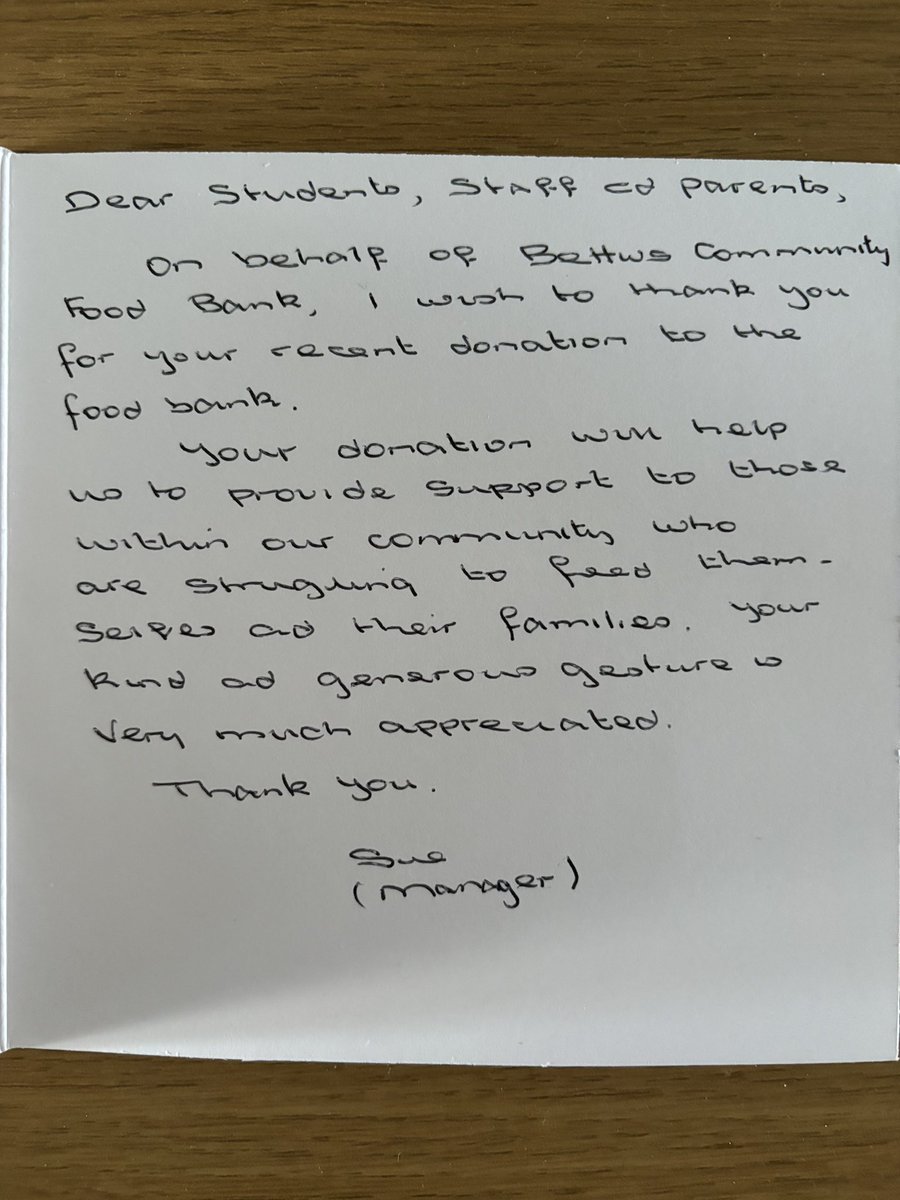 Dear Students, Staff ad parents,
On behalf of Bettws Community
Food Bank, I wish to thank you
for your recent donation to the
food bank.
Your donation will help
us to provide support to those
within our community who
are struggling to feed them-
selves ad their families. Your
kind ad generous gesture is
very much appreciated.
Thank you.
Sue
(Manager)